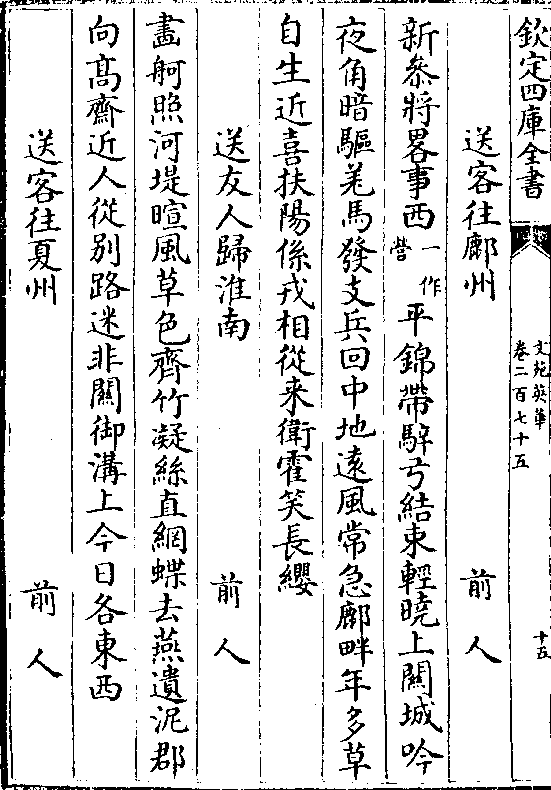 欽定四庫全書
文苑英華
卷二百七十五
十五
送客往鄜州 前人
新叅將畧事西一作營平錦帶騂弓結束輕曉上關城吟
夜角暗驅羌馬發支兵回中地遠風常急鄜畔年多草
自生近喜扶陽係戎相從来衛霍笑長纓
送友人歸淮南 前人
畵舸照河堤暄風草色齊竹凝絲直網蝶去燕遺泥郡
向髙齋近人從别路迷非關御溝上今日各東西
送客往夏州 前人